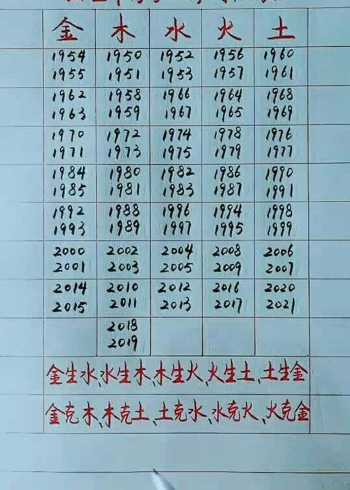 金 木 水 火 土
1954 1950 1952 1956 1960
1955 1951 1953 1957 1961
1962 1958 1966 1964 1968
1963 1959 1967 1965 1969
1970 1972 1974 1978 1976
1971 1973 1975 1979 1977
1984 1980 1982 1986 1990
1985 1981 1983 1987 1991
1992 1988 1996 1994 1998
1993 1989 1997 1995 1999
2000 2002 2004 2008 2006
2001 2003 2005 2009 2007
2014 2010 2012 2016 2020
2015 2011 2013 2017 2021
2018
2019
金生水、水生木、木生火、火生土、土生金
金克木、木克土、土克水、水克火、火克金